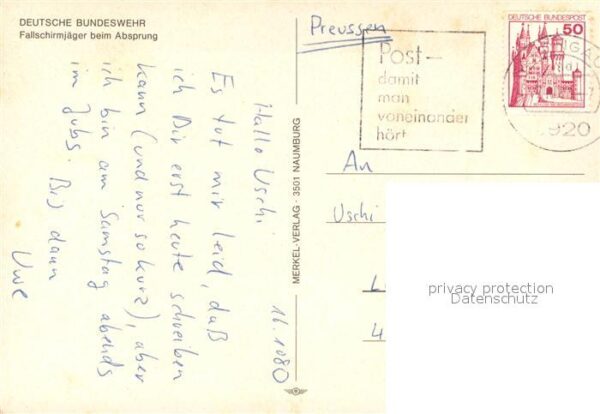 DEUTSCHE BUNDESWEHR
Fallschirmjäger beim Absprung
Preussen
Post-
damit
man
voneinander
hört
DEUTSCHE BUNDESPOST
50
920
MERKEL-VERLAG · 3501 NAUMBURG
16.1080
Hallo Uschi
Es tut mir leid, daß
ich Dir erst heute schreiben
kann (und nur so kurz), aber
ich bin am Samstag abends
im Jubs. Bis dann
Uwe
An
Uschi
L
4
privacy protection
Datenschutz